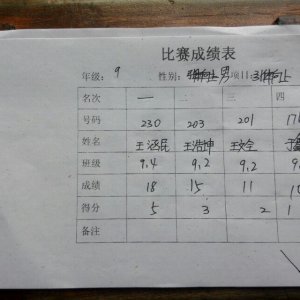 比赛成绩表
年级：9 性别：男 项目：引体向上
名次 一 二 三 四
号码 230 203 201 17
姓名 王 王浩坤 王文全 于
班级 9.4 9.2 9.2 9
成绩 18 15 11 10
得分 5 3 2 1
备注